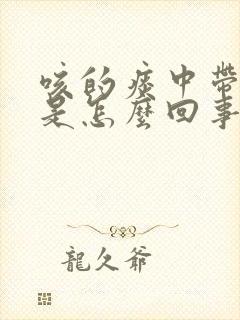 咳的痰中帶
是怎麼回事
龍久爺